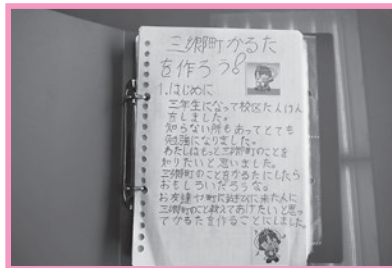 三郷町かるた
を作ろう!
1.はじめに
三年生になって校区たんけん
をしました。
知らない所もあってとても
勉強になりました。
わたしはもっと三郷町のことを
知りたいと思いました。
三郷町のことをかるたにしたら
おもしろいだろうな。
お友達や町に遊びに来た人に
三郷町のこと教えてあげたいと思っ
てかるたを作ることにしました。